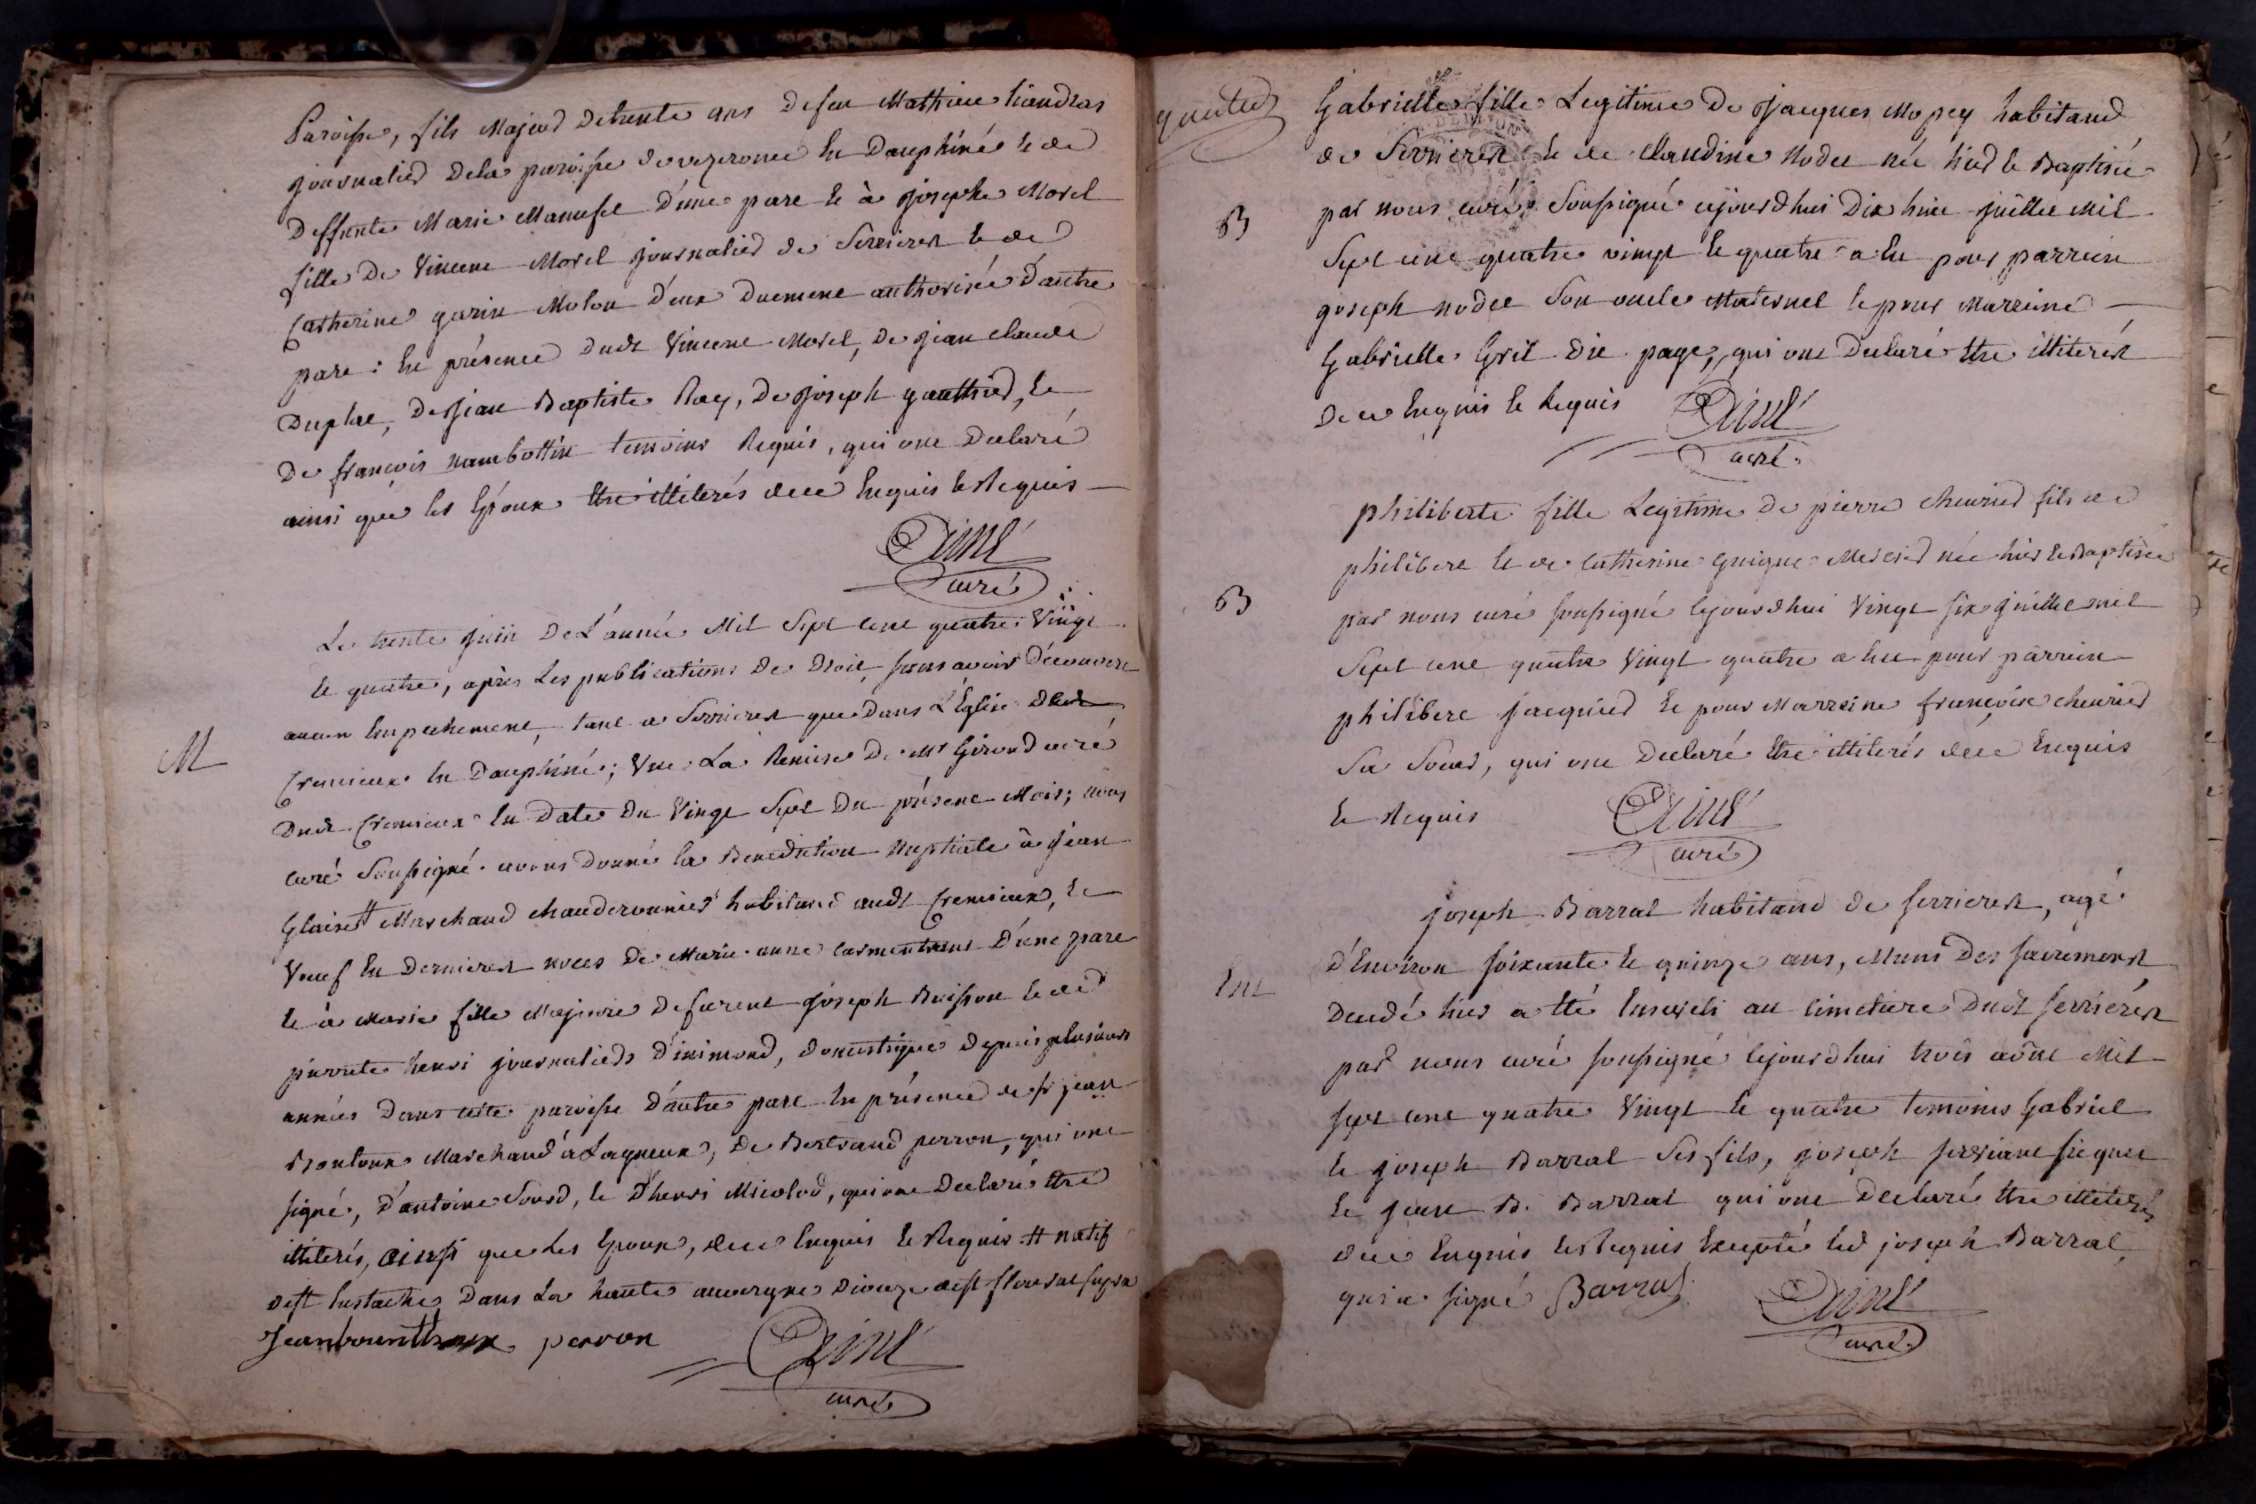 Paroisse, fils Majeur de trente ans de feu Mathieu
journalier de la paroisse de vezeronce en Dauphiné et de
Deffunte Marie d'une part et à Josephe Morel
fille de Vincent Morel journalier de Serrieres et de
Catherine garin Molou d'eux duement authorisée d'autre
part : en présence dudt Vincent Morel, de Jean Claude
Duplat, de Jean Baptiste Ray, de Joseph gauthier, et
de françois nambottin temoins Requis, qui ont Declaré
ainsi que les Epoux être illiterés de ce Enquis et Requis
Aimé
curé
Le trente juin De L'année Mil Sept cent quatre Vingt
et quatre, après Les publications de Droit, sans avoir Découvert
aucun Empechement, tant a Serrieres que dans L'Eglise de
M
Cremieux en Dauphiné; Vue La Remise de Mr Girond curé
dudt Cremieux en Date du Vingt Sept du présent Mois; nous
curé Soussigné avons donné la Benediction Nuptiale à Jean
# Marchand chauderonnier habitant audt Cremieux, et
Veuf en dernieres noces de Marie anne d'une part
et à Marie fille Majeure de furent Joseph Buisson et de
pierrette henri journaliers d'inimond, domestique depuis plusieurs
années dans cette paroisse d'autre part en présence de Sr jean
Marchand à Lagneux, de Bertrand perron, qui ont
signé, d'antoine Sourd, et d'henri Micolod, qui ont Declaré être
illiterés, ainsi que Les Epoux, de ce Enquis et Requis # natif
de St Eustache Dans La haute auvergne Diocèze de St flour
perron
Aimé
curé
Gabrielle fille Legitime de Jacques Mopey habitant
de Serrieres et de Claudine Nodet née hier et Baptisée
B
par nous curé Soussigné cejourdhui Dix huit juillet Mil
Sept cent quatre vingt et quatre a Eu pour parrein
joseph nodet Son oncle Maternel et pour Marreine
Gabrielle Gril dit page, qui ont Declaré être illiterés
de ce Enquis et Requis
Aimé
curé
philiberte fille Legitime de pierre cheurier fils de
philibert et de Catherine Guigue Mercier née hier et Baptisée
B
par nous curé soussigné cejourdhui Vingt six juillet mil
Sept cent quatre Vingt quatre a Eu pour parrein
philibert jacquier et pour Marreine françoise cheurier
Sa Soeur, qui ont Declaré être illiterés de ce Enquis
et Requis
Aimé
curé
joseph Barral habitant de serrieres, agé
d'Environ soixante et quinze ans, Muni des sacrements
Ent
Decedé hier a été Enseveli au cimetiere dudt serrieres
par nous curé soussigné cejourdhui trois août Mil
sept cent quatre Vingt et quatre temoins Gabriel
et joseph Barral ses fils, joseph
et jean B. Barral qui ont Declaré être illiterés
de ce Enquis et Requis Excepté led joseph Barral
qui a signé Barral
Aimé
curé